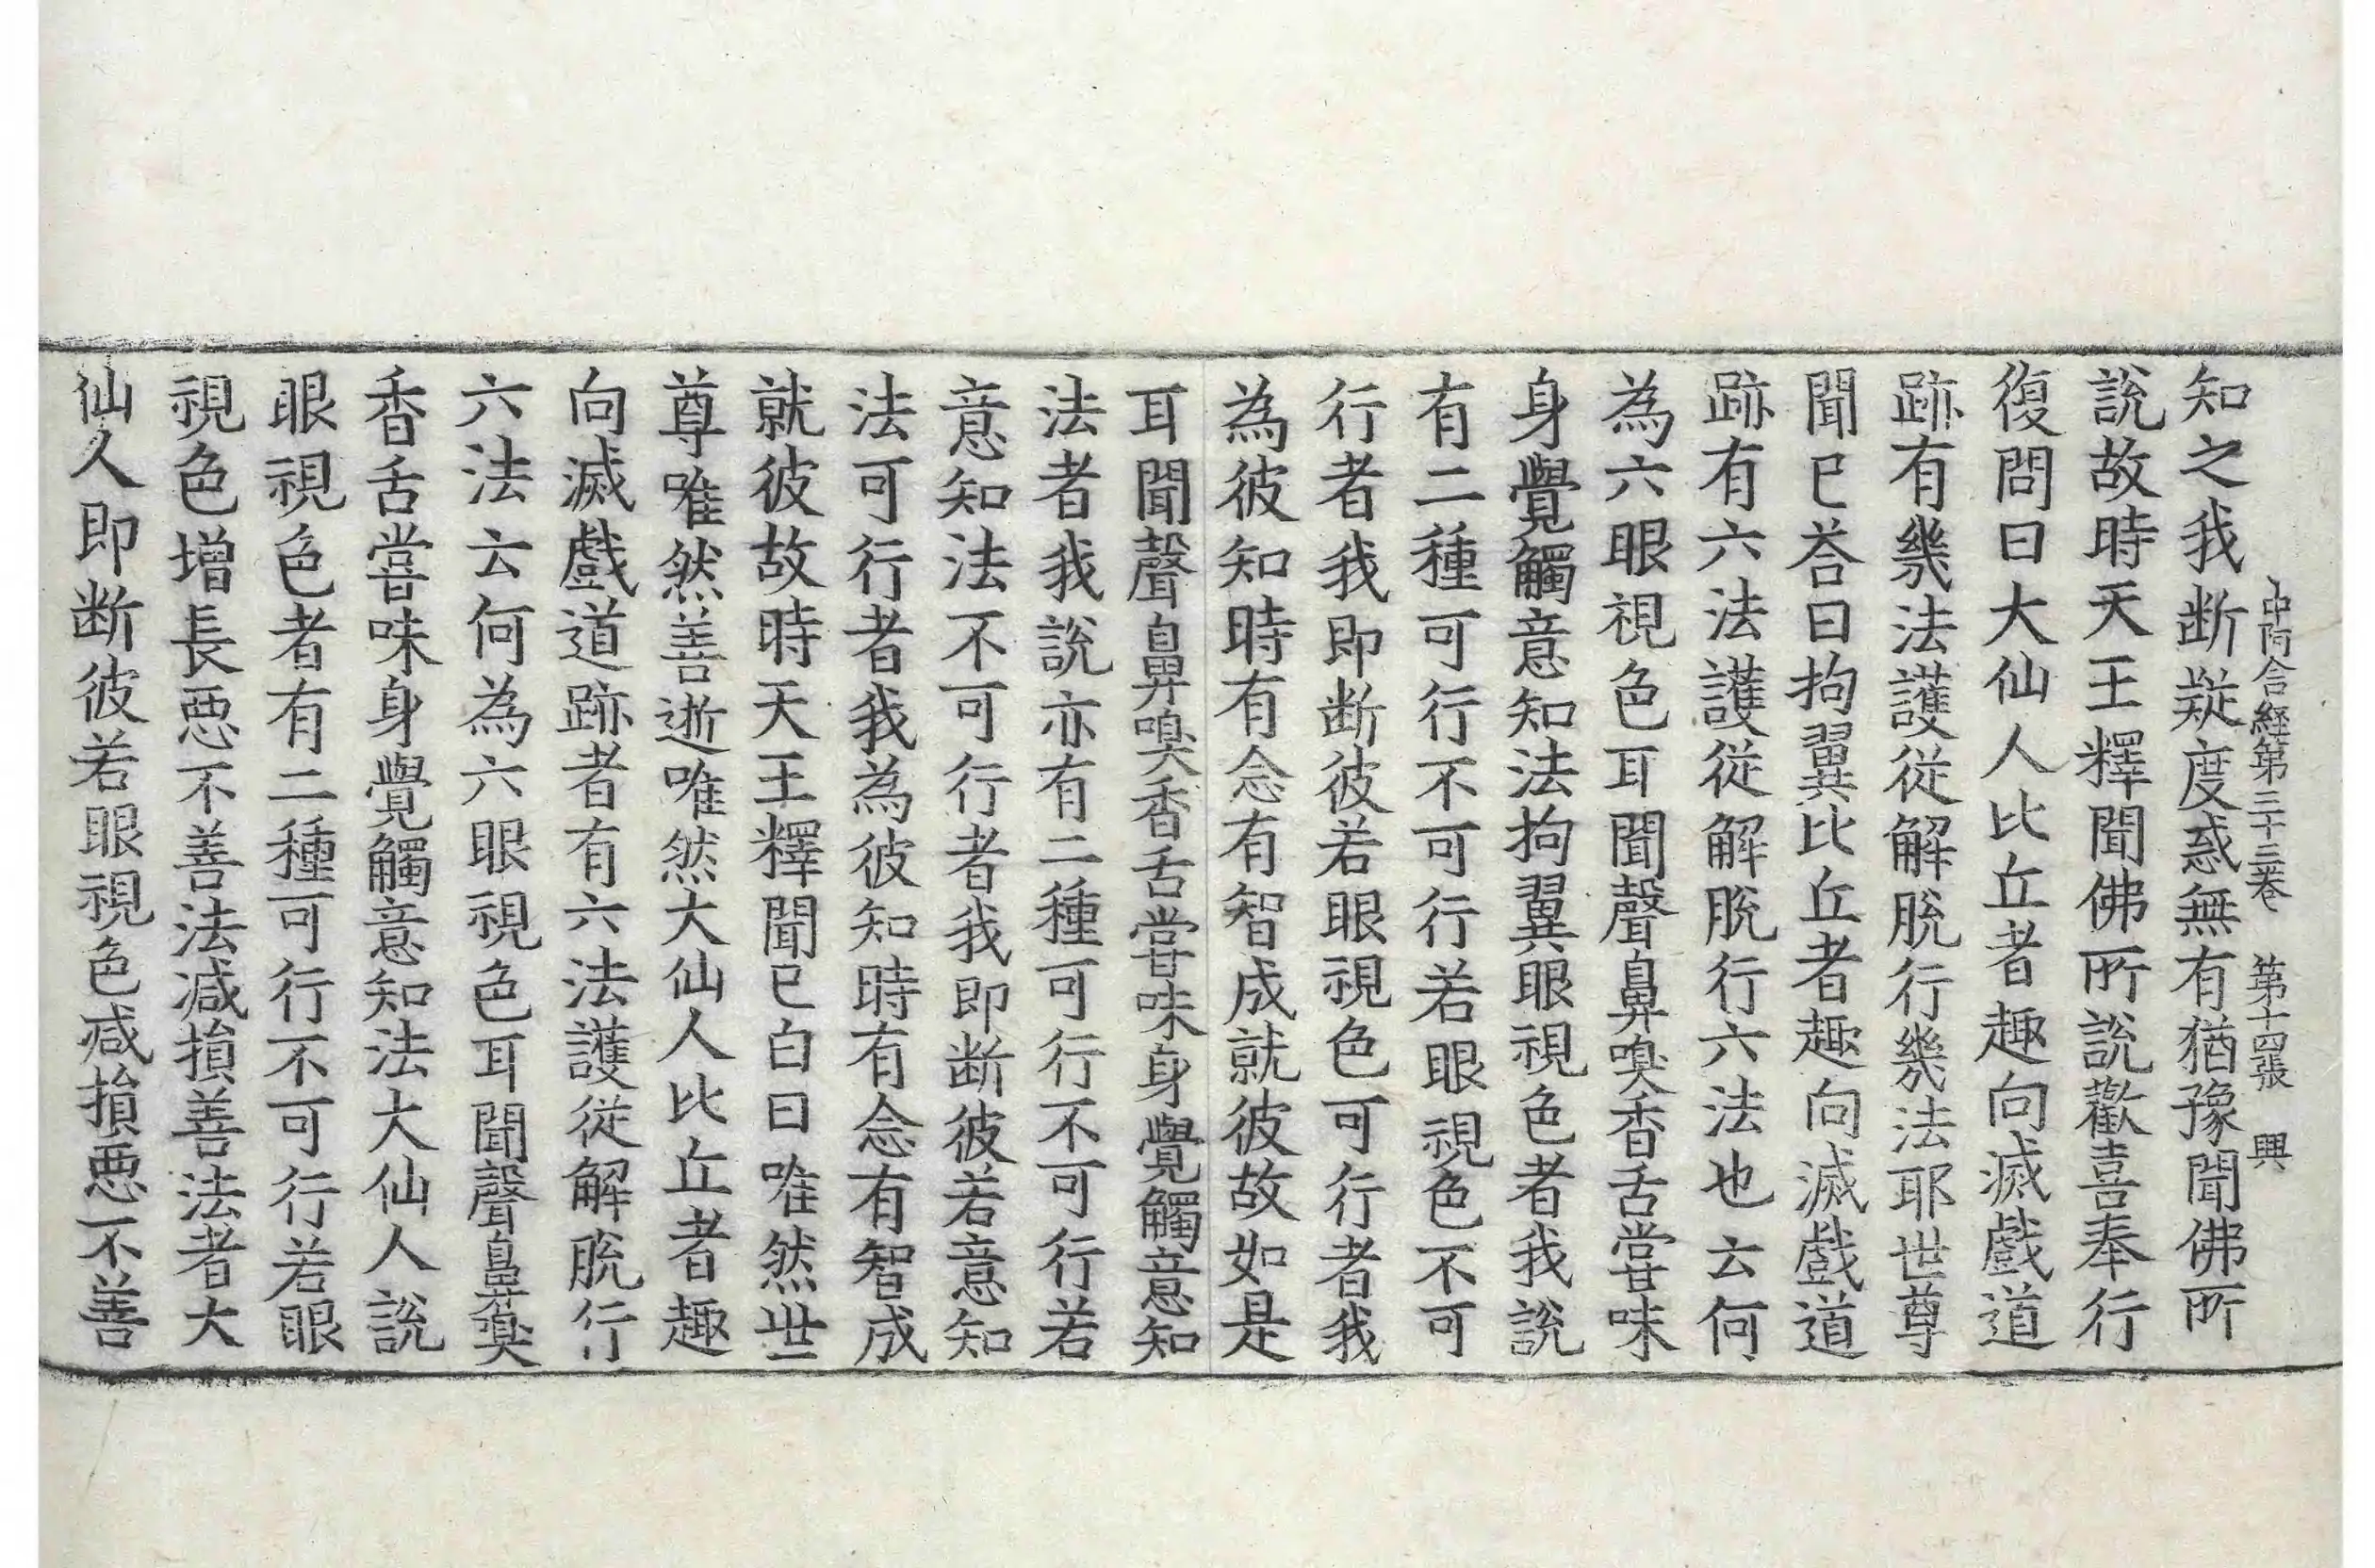 中阿含經第三十三卷　第十四張　興
知之我断疑度惑無有猶豫聞佛所
說故時天王釋聞佛所說歡喜奉行
復問曰大仙人比丘者趣向滅戲道
跡有幾法護從解脫行幾法耶世尊
聞已荅曰拘翼比丘者趣向滅戲道
跡有六法護從解脫行六法也云何
為六眼視色耳聞聲鼻嗅香舌甞味
身覺觸意知法拘翼眼視色者我說
有二種可行不可行若眼視色不可
行者我即断彼若眼視色可行者我
為彼知時有念有智成就彼故如是
耳聞聲鼻嗅香舌甞味身覺觸意知
法者我說亦有二種可行不可行若
意知法不可行者我即断彼若意知
法可行者我為彼知時有念有智成
就彼故時天王釋聞已白曰唯然世
尊唯然善逝唯然大仙人比丘者趣
向滅戲道跡者有六法護從解脫行
六法云何為六眼視色耳聞聲鼻嗅
香舌嘗味身覺觸意知法大仙人說
眼視色者有二種可行不可行若眼
視色增長惡不善法減損善法者大
仙人即断彼若眼視色減損惡不善